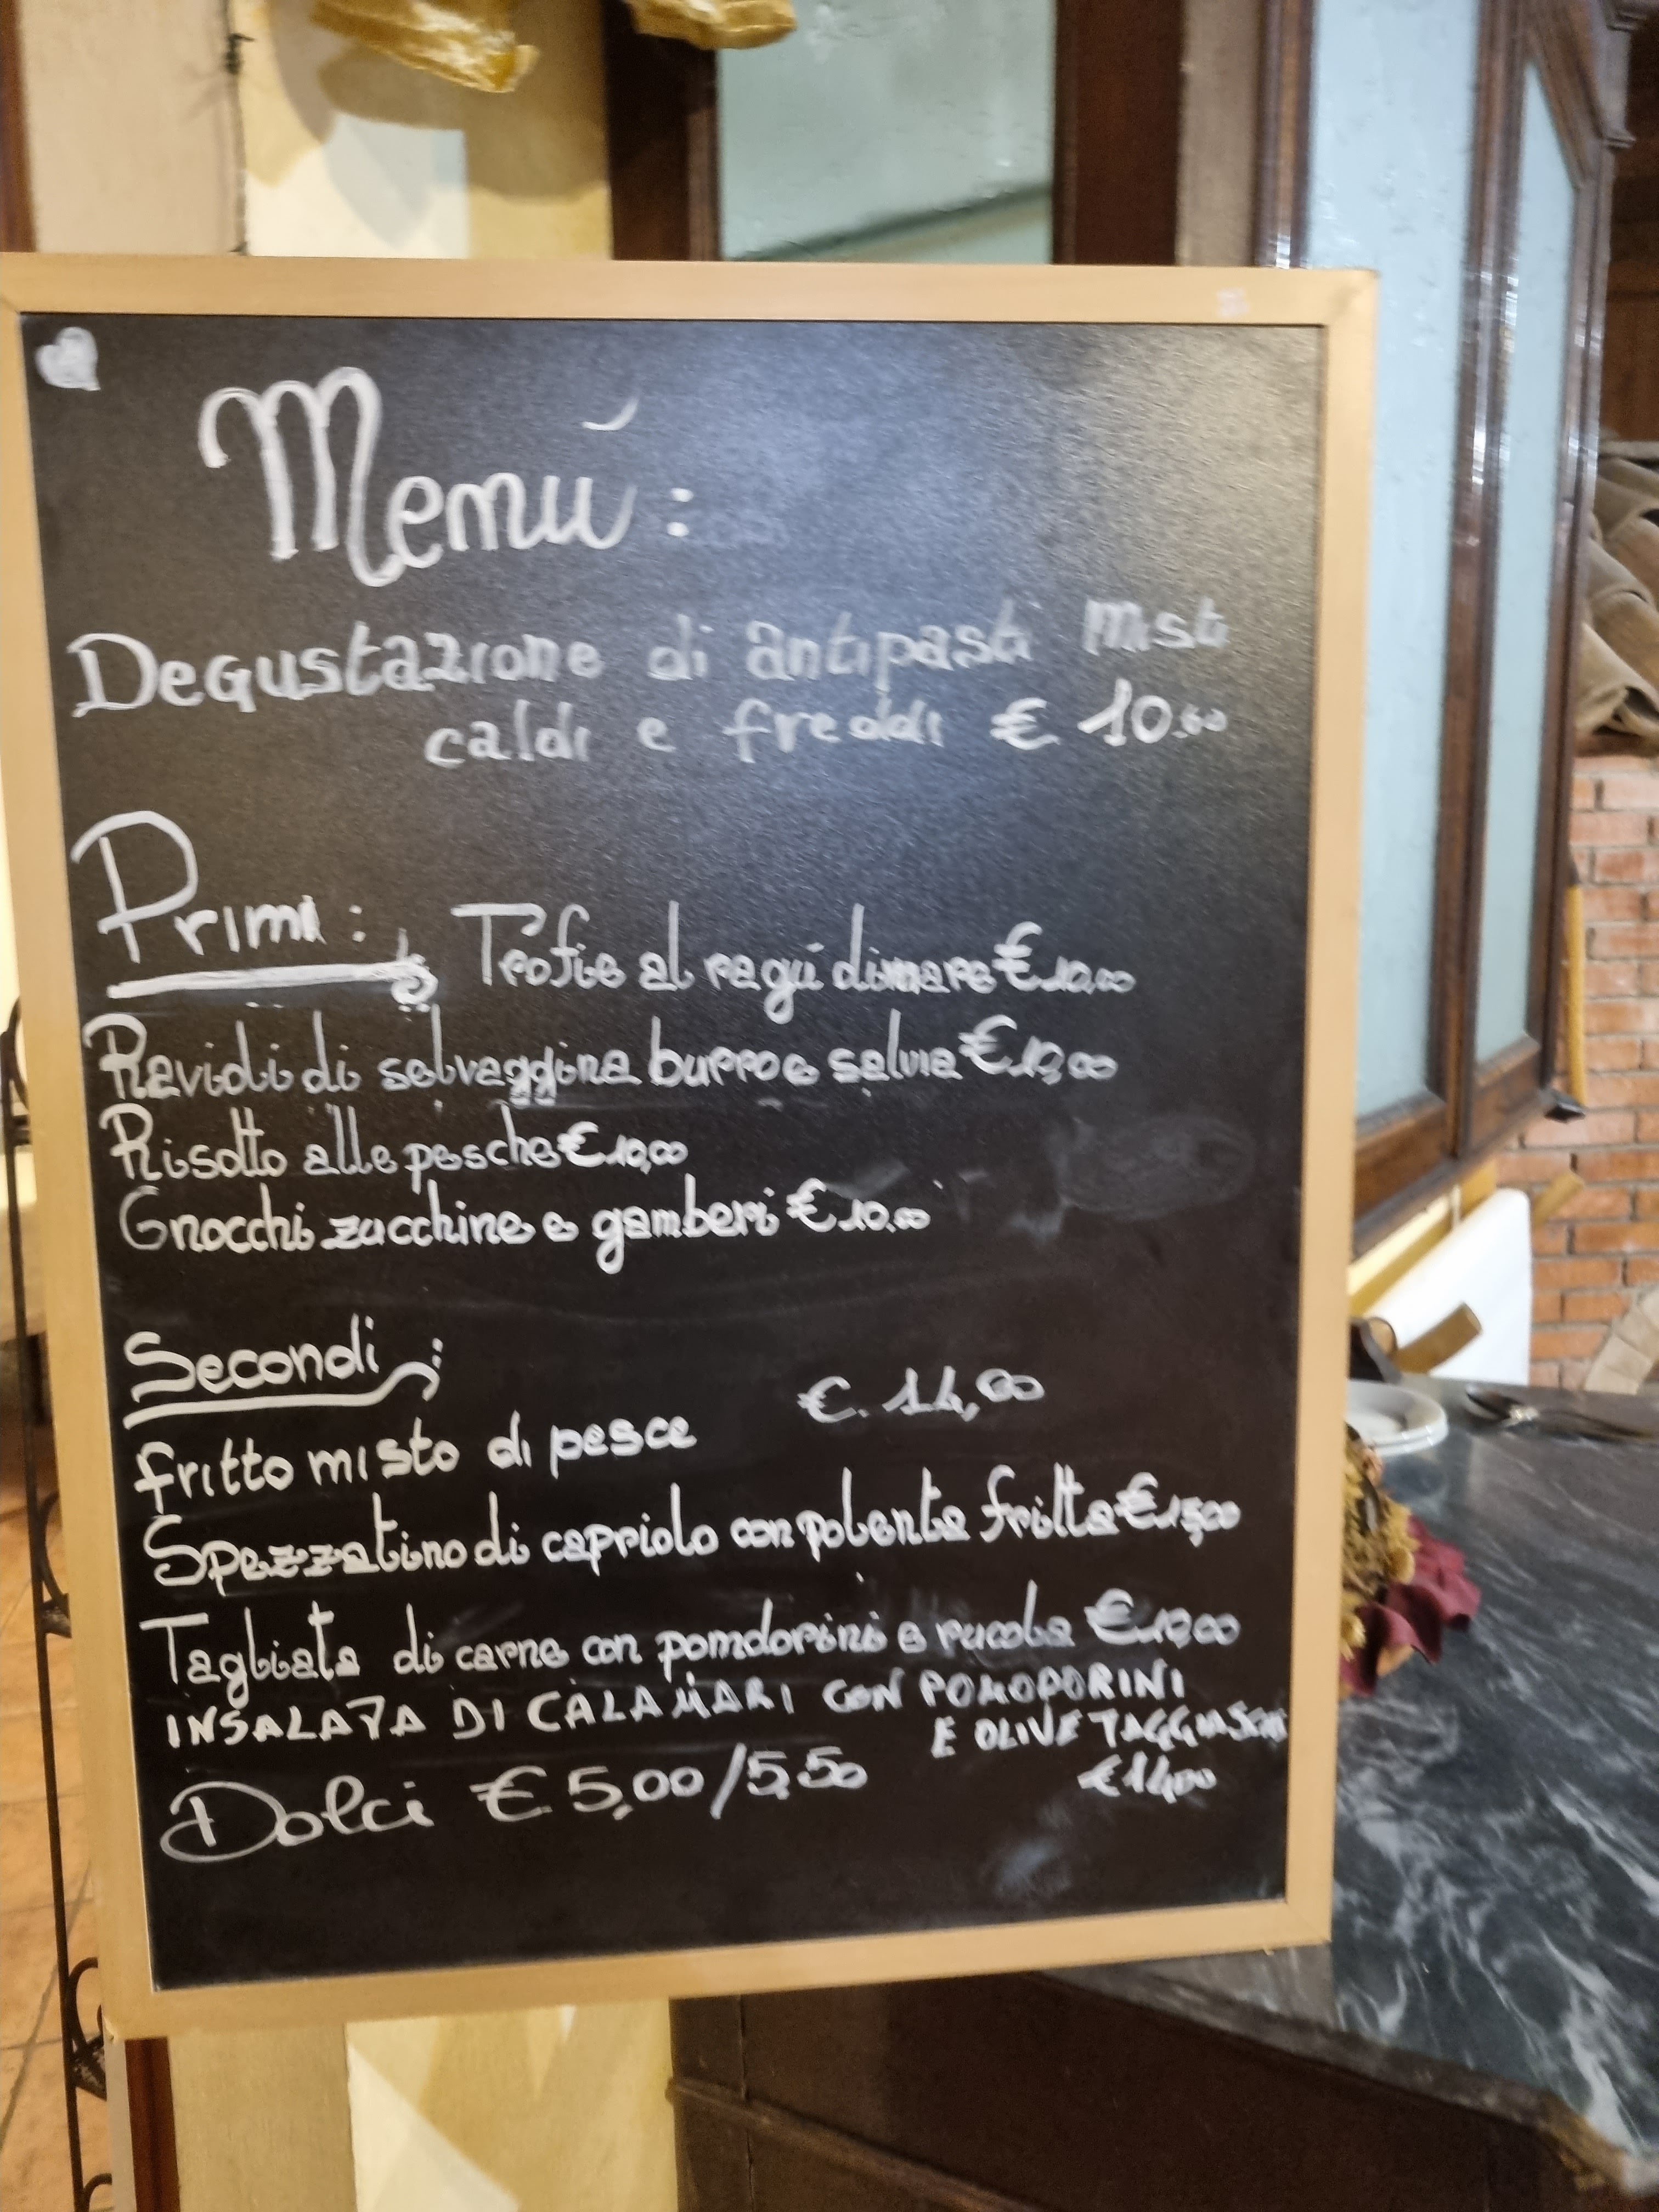 Menú:
Degustazione di antipasti misti
caldi e freddi € 10.00
Primi: Trofie al ragú di mare € 10,00
Ravioli di selvaggina burro e salvia € 10,00
Risotto alle pesche € 10,00
Gnocchi zucchine e gamberi € 10.00
Secondi:
€. 14,00
fritto misto di pesce
Spezzatino di capriolo con polenta fritta € 15,00
Tagliata di carne con pomdorini e rucola €
INSALATA DI CALAMARI CON POMODORINI
E OLIVE TAGGIASCHE
€ 14,00
Dolci € 5,00/5,50